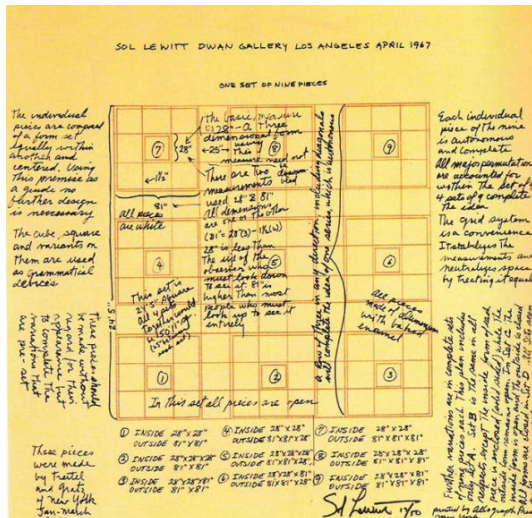 SOL LEWITT DWAN GALLERY LOS ANGELES APRIL 1967
ONE SET OF NINE PIECES
The individual
pieces are composed
of a form set
equally within
another and
centered. Using
this premise as
a guide no
further design
is necessary
The cube, square
and variants on
them are used
as grammatical
devices
These pieces should
be made without
regard for their
appearance but
to complete the
variations that
are pre-set
These pieces
were made
by Treitel
and Gratz
of New York
Jan-March
the basic measure
is 28" - A three
dimensional form
using
this
measure need not
There are two
measurements used
28" & 81"
All dimensions
are one or the other
28" is less than
the eye of the
observer who
must look down
to see it. 81" is
higher than most
people who must
look up to see it
entirely
28"
81"
all pieces
are white
This set is
square
All 4 sets
together would
a row of three in any direction, including diagonals
will complete the idea of one series, which is autonomous
all pieces
made of aluminum
with baked
enamel
7
8
9
4
6
1
2
3
In this set all pieces are open
Each individual
piece of the nine
is autonomous
and complete
All major permutations
are accounted for
within the set of
4 parts of 9 complete
the idea
The grid system
is a convenience
It stabilizes the
measurements and
neutralizes space
by treating it equally
Further variations are in complete sets
of nine pieces each. This plan includes
only set A. Set B is the same in all
respects except the inside form of each
piece is enclosed (solid sided) while the
outside remains open. In Set C the
inside form is open and the outside is closed
all forms are closed in Set D.
1 INSIDE 28"x28"
OUTSIDE 81"x81"
2 INSIDE 28"x28"x28"
OUTSIDE 81"x81"
3 INSIDE 28"x28"x81"
OUTSIDE 81"x81"
4 INSIDE 28"x28"
OUTSIDE 81"x81"x28"
INSIDE 28"x28"x28"
OUTSIDE 81"x81"x28"
INSIDE 28"x28"x81"
OUTSIDE 81"x81"x28"
7 INSIDE 28"x28"
OUTSIDE 81"x81"x81"
8 INSIDE 28"x28"x28"
OUTSIDE 81"x81"x81"
9 INSIDE 28"x28"x81"
OUTSIDE 81"x81"x81"
Sol Lewitt
printed by